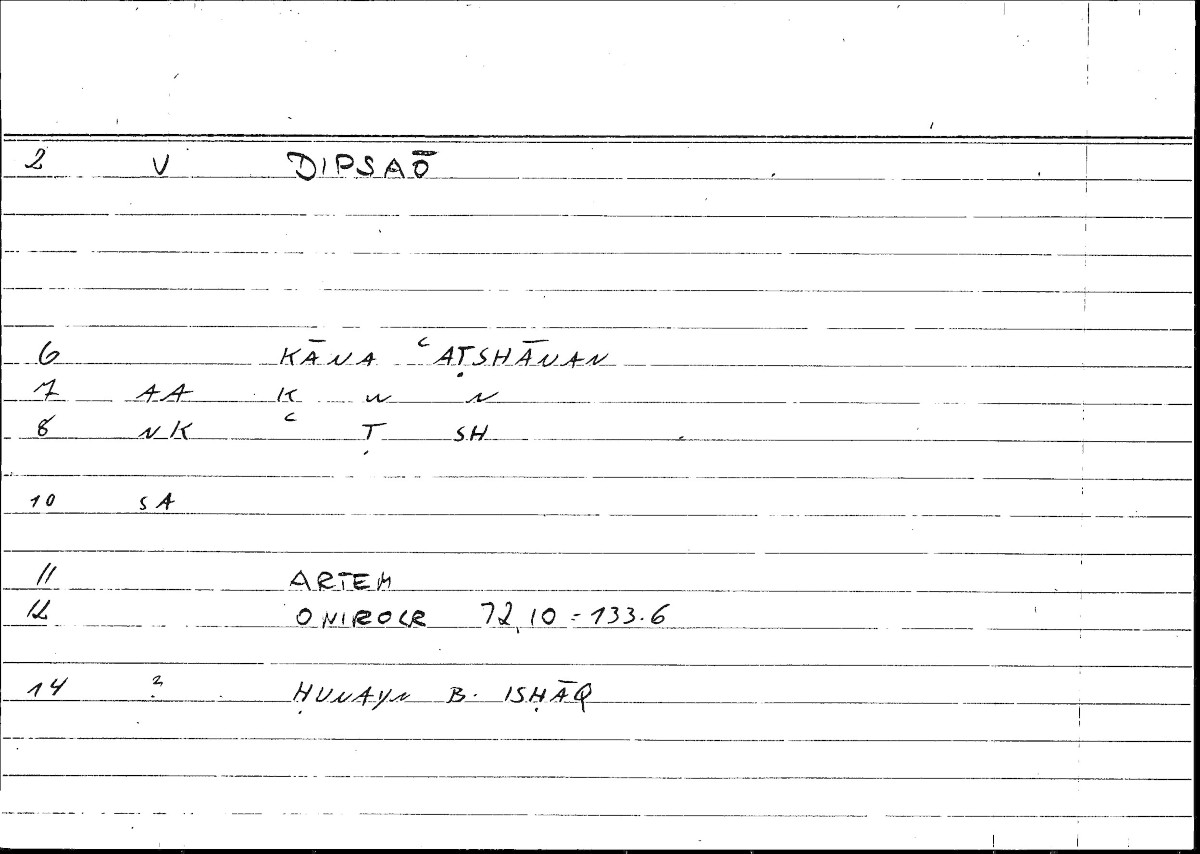 2 V DIPSAŌ
6 KĀNA ʿAṬSHĀNAN
7 AA K W N
8 NK ʿ Ṭ SH
10 SA
11 ARTEM
12 ONIROCR 72,10 = 133.6
14 ? ḤUNAYN B. ISḤĀQ